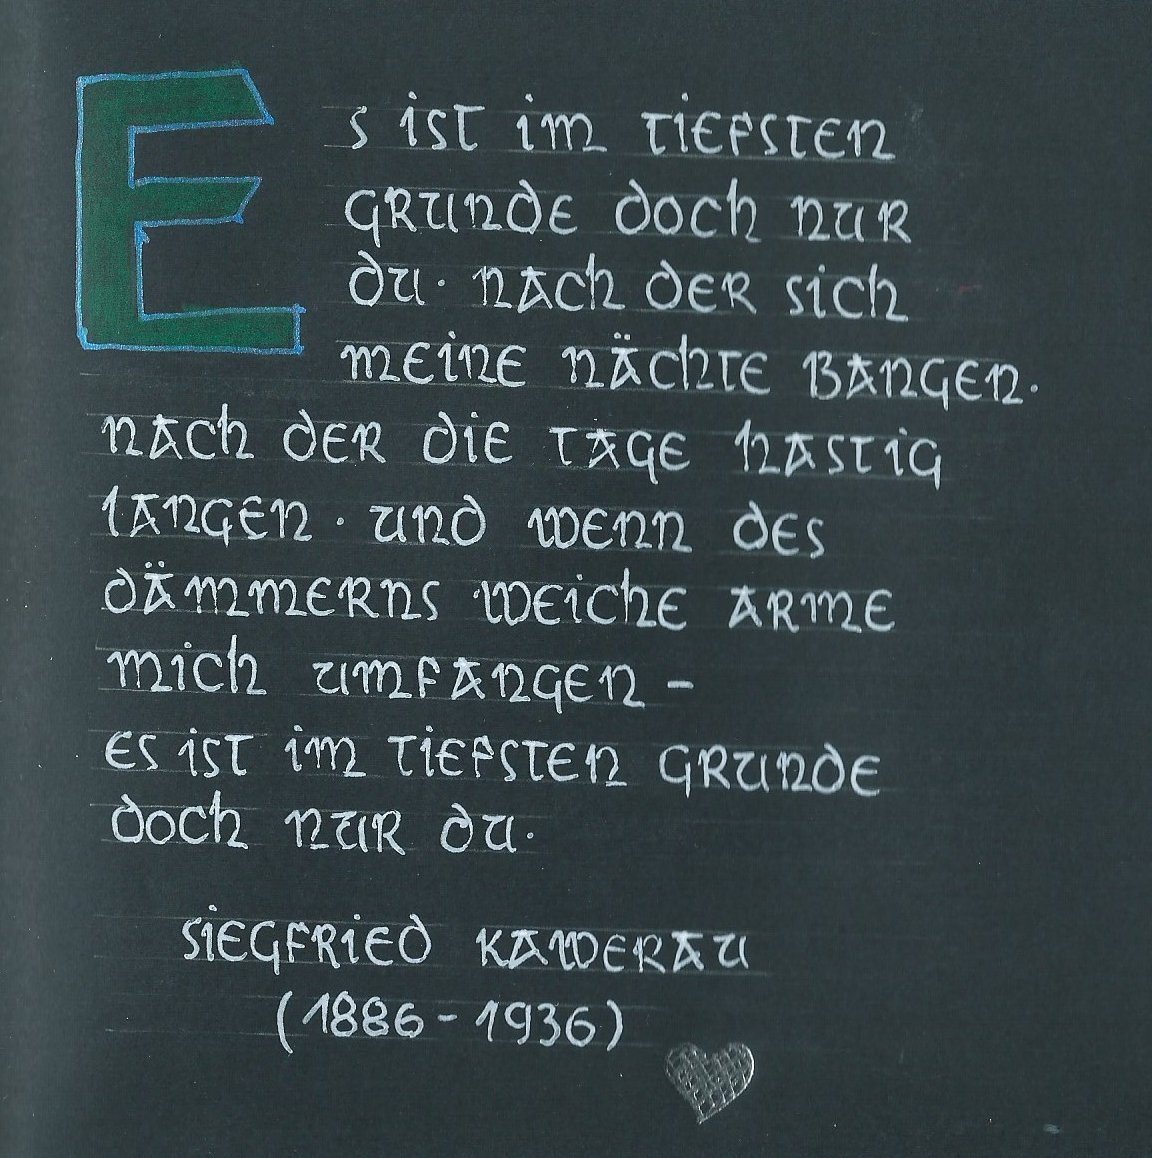 Es ist im tiefsten
Grunde doch nur
du · nach der sich
meine Nächte bangen ·
nach der die Tage hastig
langen · und wenn des
Dämmerns weiche Arme
mich umfangen –
es ist im tiefsten Grunde
doch nur du ·
Siegfried Kawerau
(1886 - 1936)